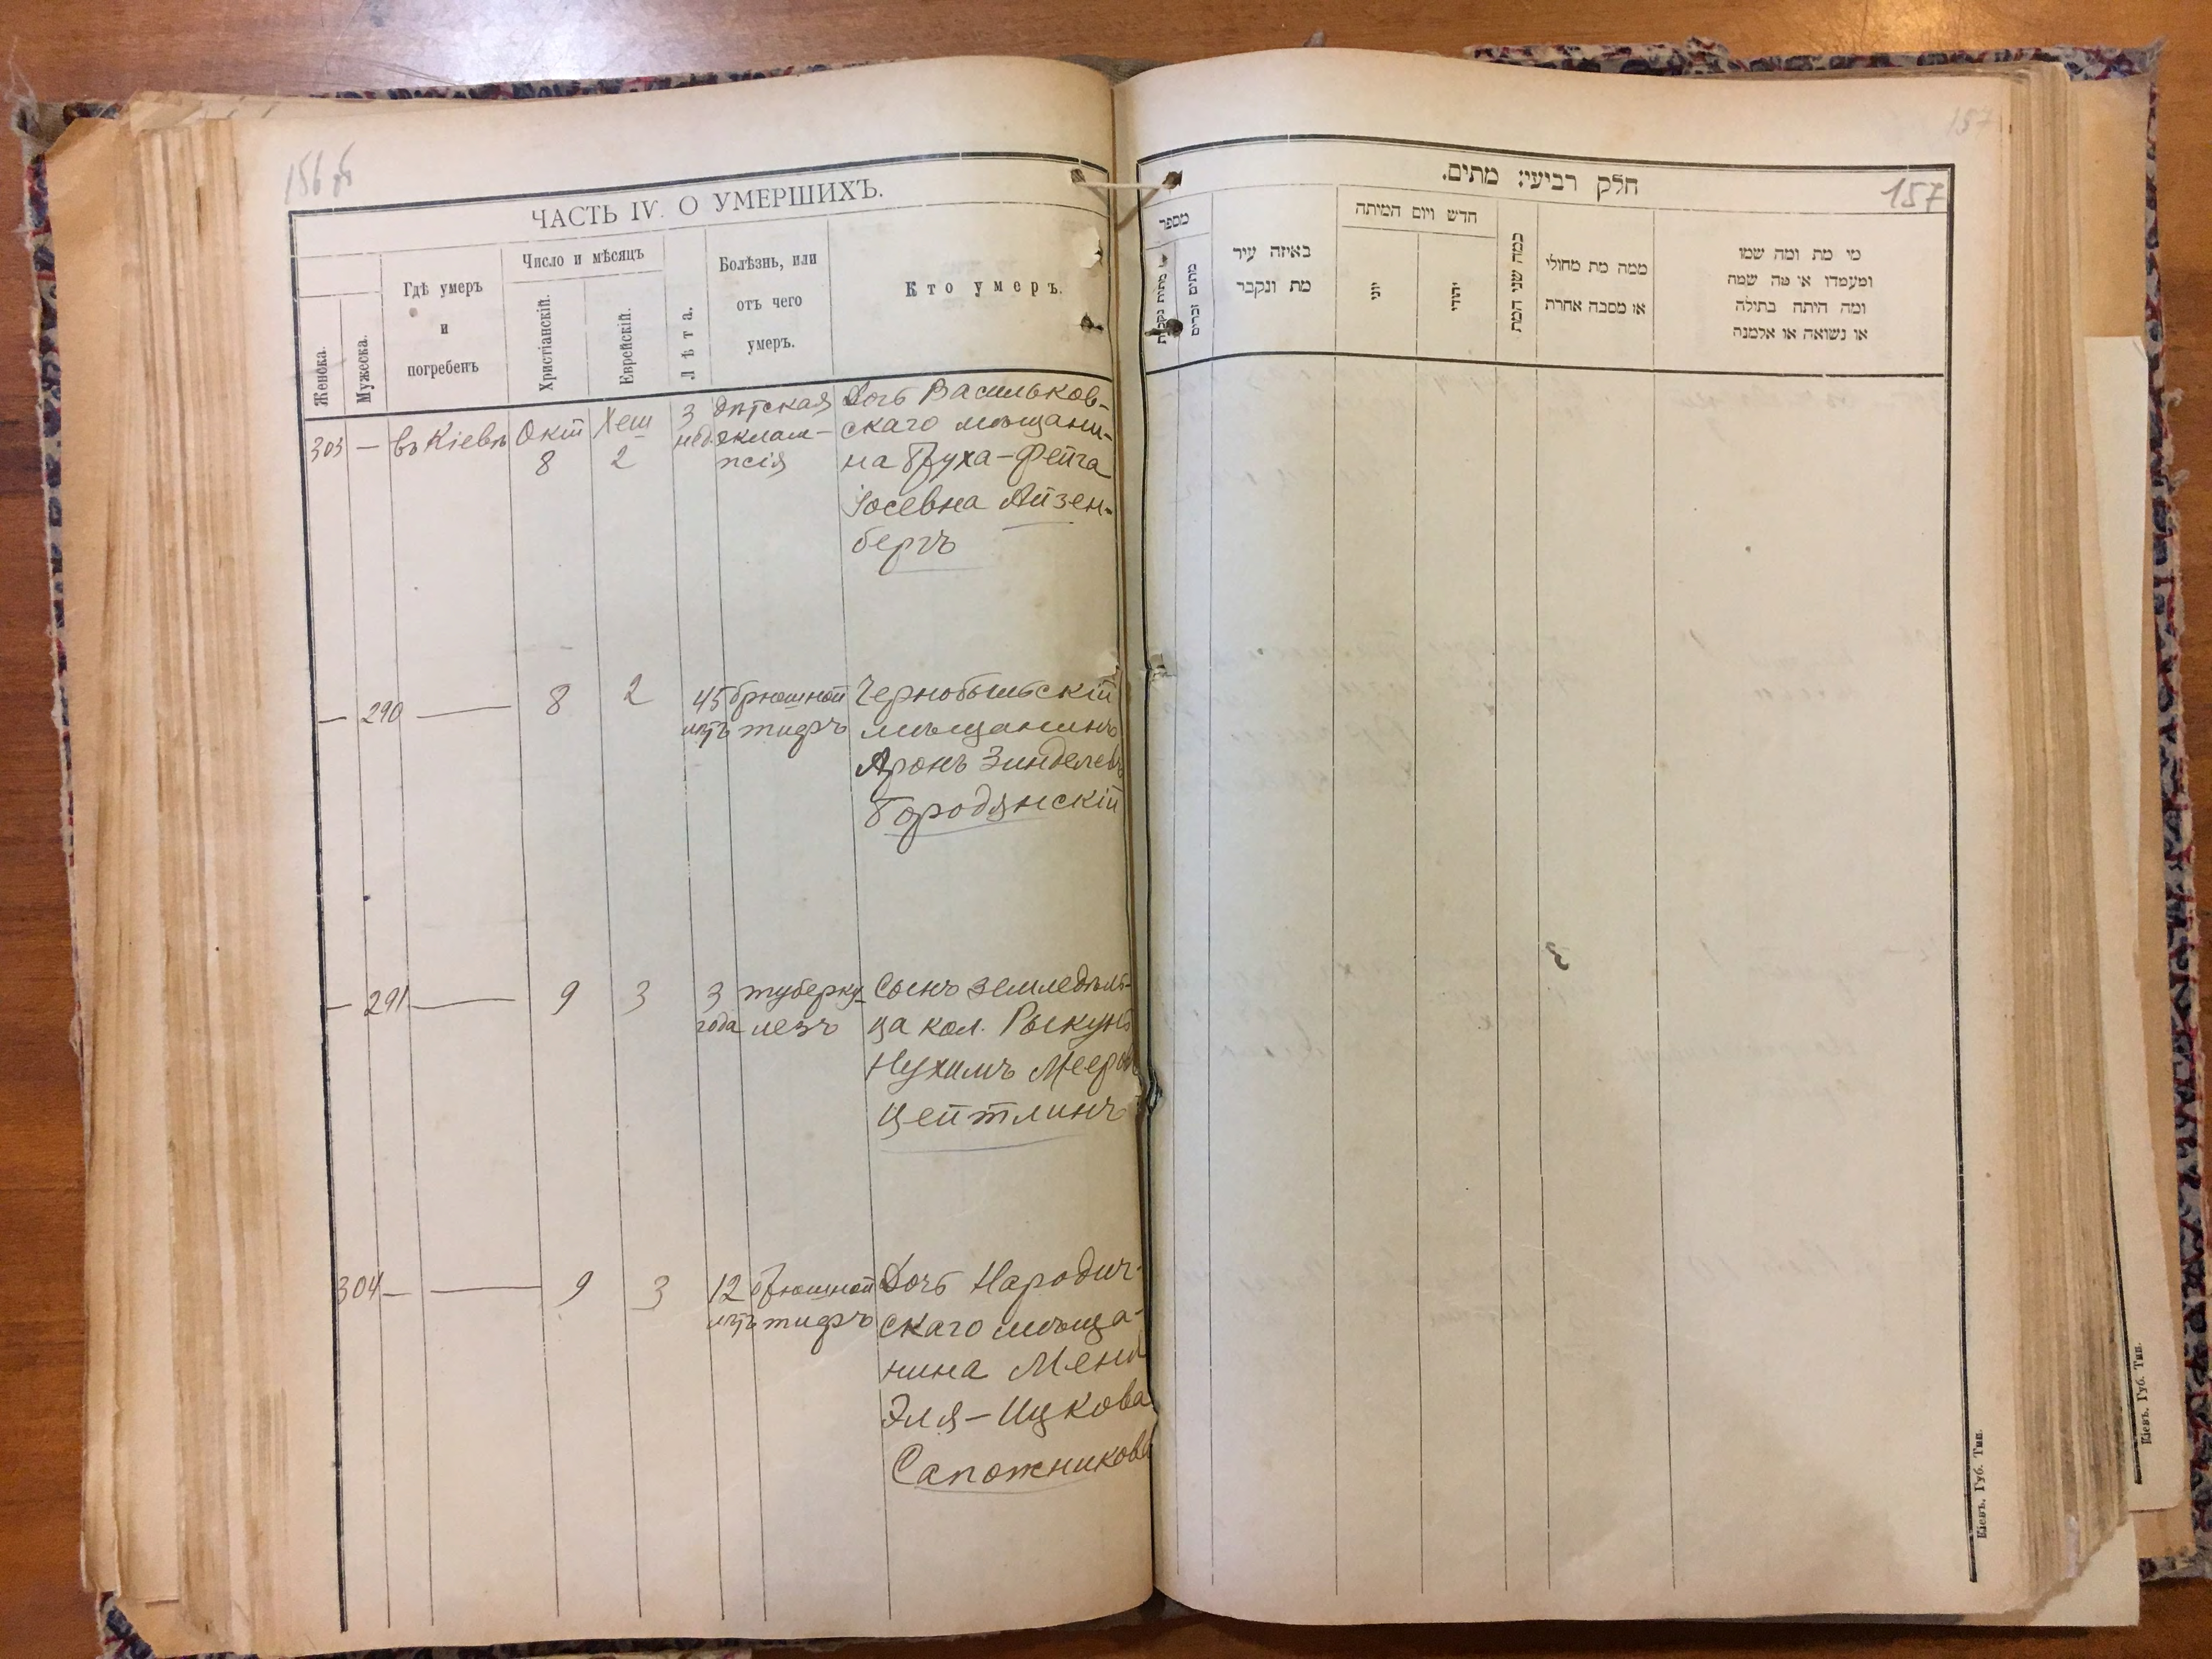 156 об
ЧАСТЬ IV. О УМЕРШИХЪ.
Женска.
Мужеска.
Гдѣ умеръ
и
погребенъ
Число и мѣсяцъ
Христіанскій.
Еврейскій.
Лѣта.
Болѣзнь, или
отъ чего
умеръ.
Кто умеръ.
303 — въ Кіевѣ Окт 8 Хеш 2
3 нед
дѣтская
эклам-
псія
Дочь Васильков-
скаго мѣщани-
на Фейга
Іосевна Айзен-
бергъ
— 290 — 8 2
45 лѣтъ
брюшной
тифъ
Чернобыльскій
мѣщанинъ
Аронъ Зинделев
Городянскій
— 291 — 9 3
3 года
туберку-
лезъ
Сынъ земледѣль-
ца кол. Рыкунь
Нухимъ Мееров
Цейтлинъ
304 — — 9 3
12 лѣтъ
брюшной
тифъ
Дочь Народич-
скаго мѣща-
нина Меня
Эля-Ицкова
Сапожникова
157
157
חלק רביעי: מתים.
מספר
מתות נקבות
מתים זכרים
באיזה עיר
מת ונקבר
חדש ויום המיתה
יוני
יהודי
כמה שני המת
ממה מת מחולי
או מסבה אחרת
מי מת ומה שמו
ומעמדו או מה שמה
ומה היתה בתולה
או נשואה או אלמנה
Кіевъ. Губ. Тип.
Кіевъ. Губ. Тип.